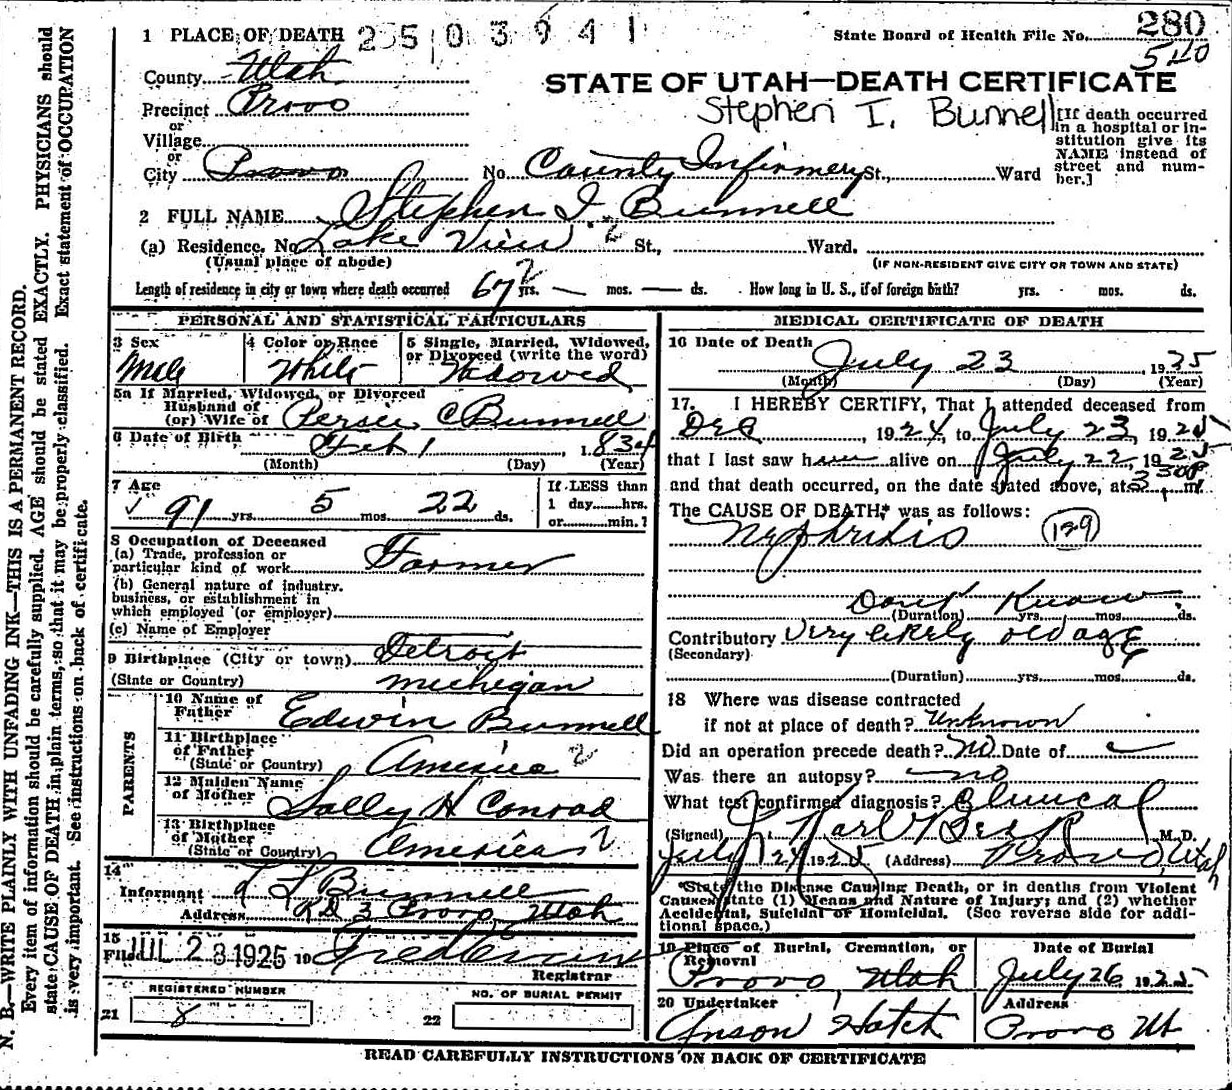 1 PLACE OF DEATH 2503941
State Board of Health File No. 280
540
County Utah
STATE OF UTAH—DEATH CERTIFICATE
Precinct Provo
Stephen I. Bunnell
[If death occurred in a hospital or institution give its NAME instead of street and number.]
or
Village
or
City Provo No. County Infirmery St., Ward
2 FULL NAME Stephen I Bunnell
(a) Residence, No. Lake View 2 St., Ward.
(Usual place of abode) (IF NON-RESIDENT GIVE CITY OR TOWN AND STATE)
Length of residence in city or town where death occurred 67 2 yrs. — mos. — ds. How long in U. S., if of foreign birth? yrs. mos. ds.
PERSONAL AND STATISTICAL PARTICULARS
3 Sex 4 Color or Race 5 Single, Married, Widowed, or Divorced (write the word)
Male White Widowed
5a If Married, Widowed, or Divorced
Husband of
(or) Wife of Persis C Bunnell
6 Date of Birth Feb 1, 1834
(Month) (Day) (Year)
7 Age If LESS than
1 day hrs.
91 yrs. 5 mos. 22 ds. or min.?
8 Occupation of Deceased
(a) Trade, profession or
particular kind of work Farmer
(b) General nature of industry,
business, or establishment in
which employed (or employer)
(c) Name of Employer
9 Birthplace (City or town) Detroit
(State or Country) Michigan
PARENTS
10 Name of
Father Edwin Bunnell
11 Birthplace
of Father
(State or Country) America 2
12 Maiden Name
of Mother Sally H Conrad
13 Birthplace
of Mother
(State or Country) America 2
14
Informant L L Bunnell
Address RD 3 Provo, Utah
15
Filed JUL 23 1925 19
Registrar
REGISTERED NUMBER NO. OF BURIAL PERMIT
21 8 22
MEDICAL CERTIFICATE OF DEATH
16 Date of Death
July 23 1925
(Month) (Day) (Year)
17. I HEREBY CERTIFY, That I attended deceased from
Dec, 1924, to July 23, 1925
that I last saw him alive on July 22, 1925
and that death occurred, on the date stated above, at 3 30P, m.
The CAUSE OF DEATH,* was as follows:
Nephritis (129)
Dont Know
(Duration) yrs. mos. ds.
Contributory Very likely old age
(Secondary)
(Duration) yrs. mos. ds.
18 Where was disease contracted
if not at place of death? Unknown
Did an operation precede death? No Date of
Was there an autopsy? no
What test confirmed diagnosis? Clinical
(Signed) J Karl Beck M. D.
July 24 1925 (Address) Provo, Utah
*State the Disease Causing Death, or in deaths from Violent
Causes state (1) Means and Nature of Injury; and (2) whether
Accidental, Suicidal or Homicidal. (See reverse side for additional space.)
19 Place of Burial, Cremation, or Removal Date of Burial
Provo, Utah July 26 1925
20 Undertaker Address
Anson Hatch Provo Ut
READ CAREFULLY INSTRUCTIONS ON BACK OF CERTIFICATE
N. B.—WRITE PLAINLY WITH UNFADING INK—THIS IS A PERMANENT RECORD.
Every item of information should be carefully supplied. AGE should be stated EXACTLY. PHYSICIANS should
state CAUSE OF DEATH in plain terms, so that it may be properly classified. Exact statement of OCCUPATION
is very important. See instructions on back of certificate.